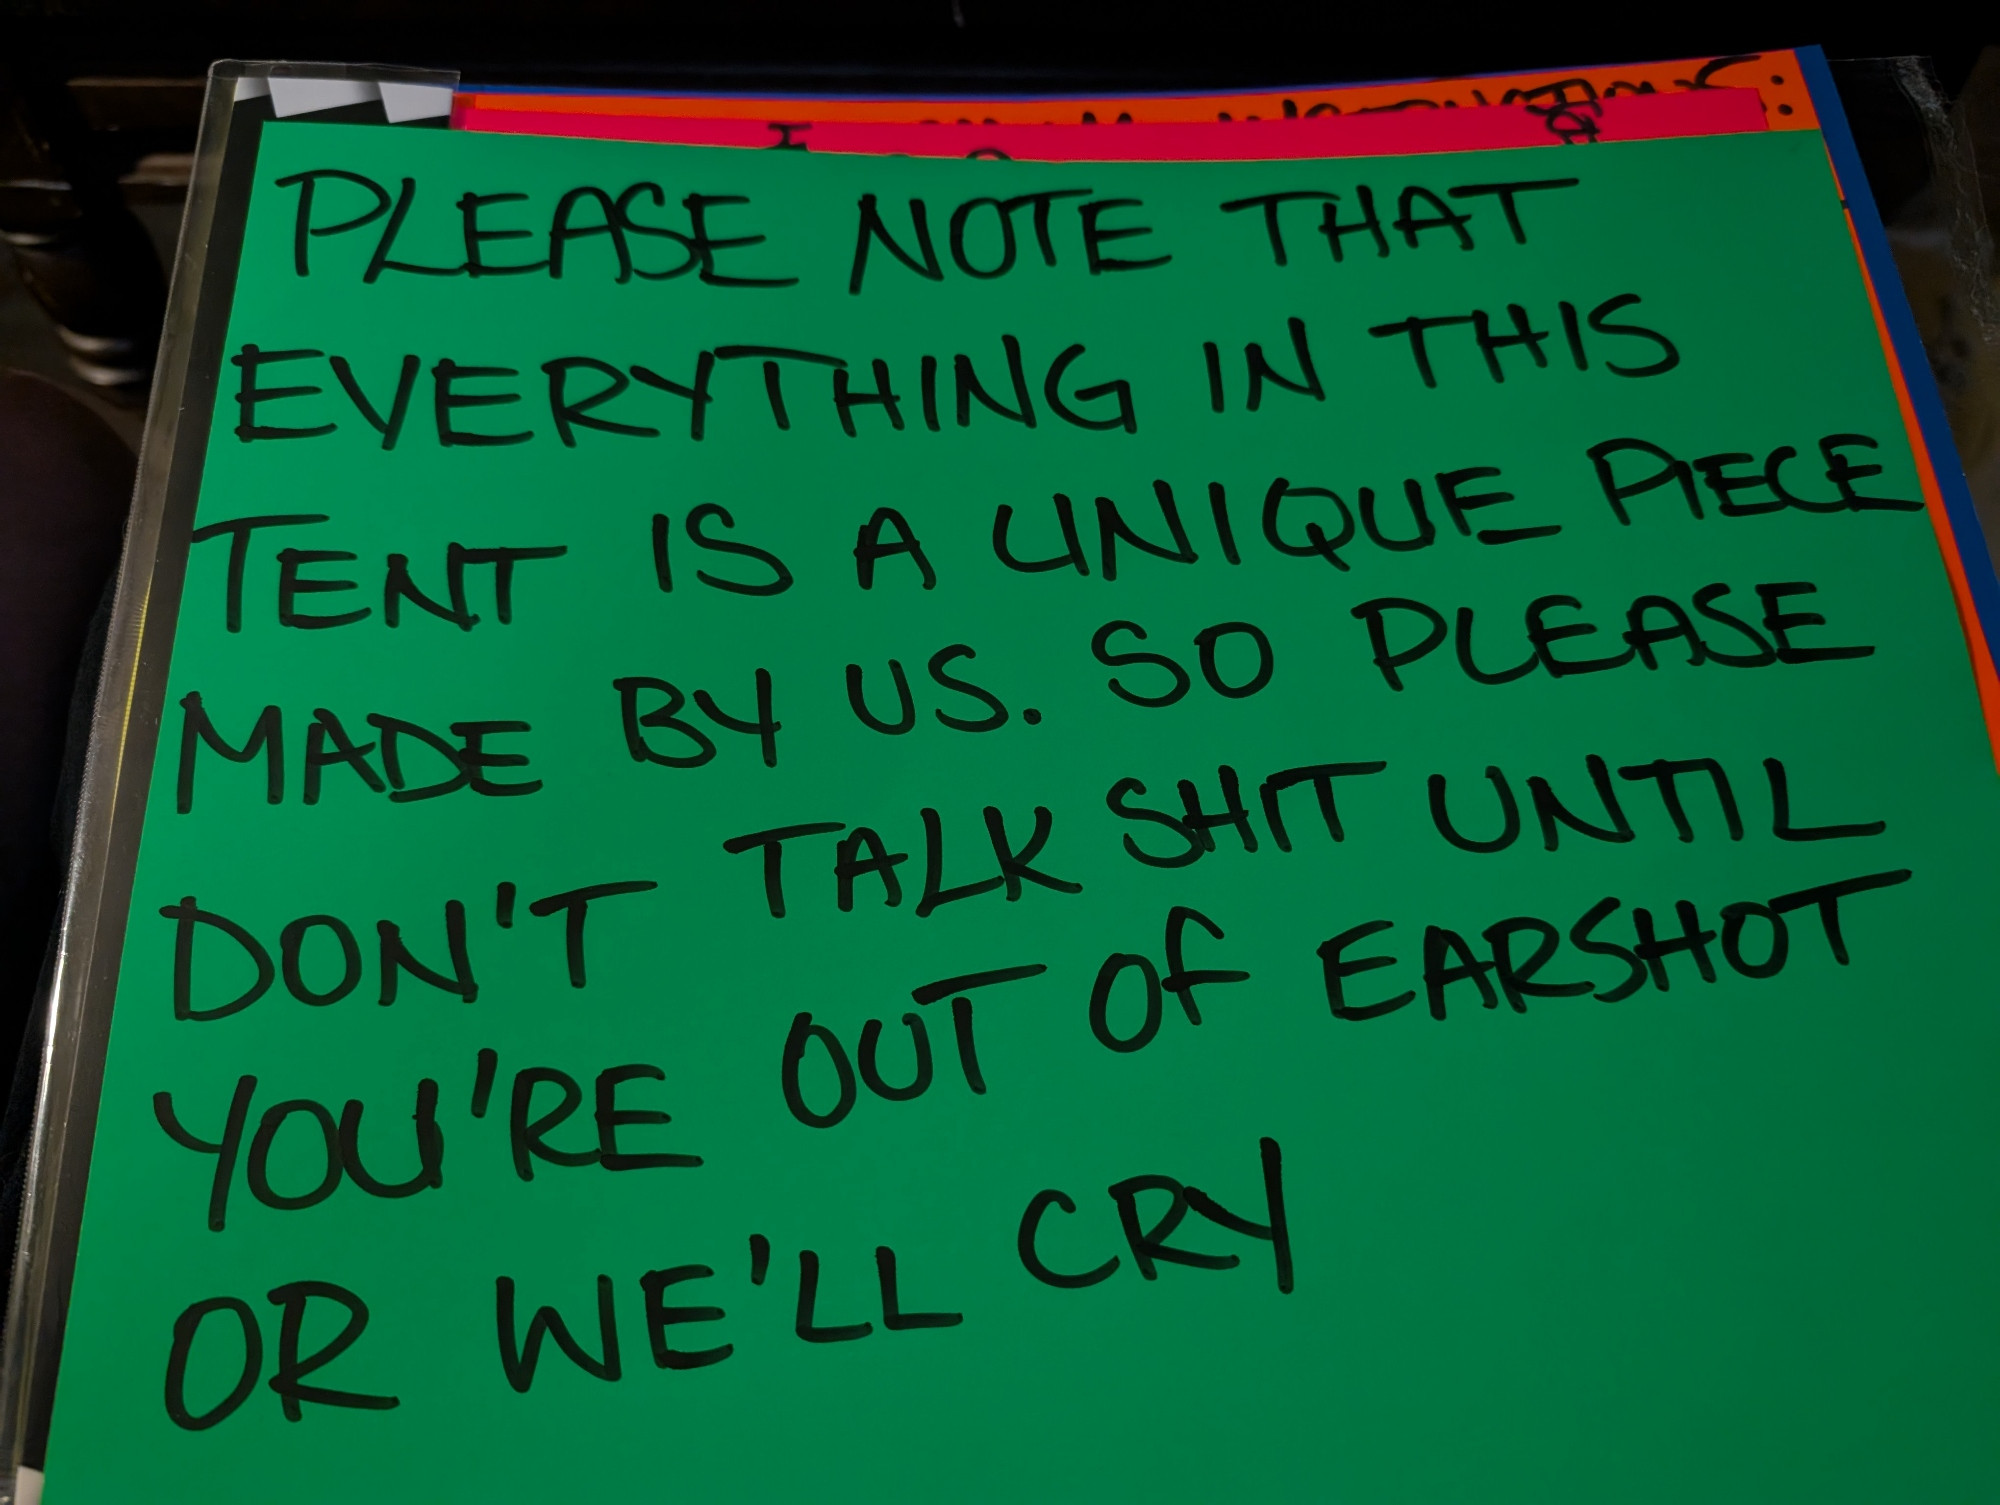 PLEASE NOTE THAT
EVERYTHING IN THIS
TENT IS A UNIQUE PIECE
MADE BY US. SO PLEASE
DON'T TALK SHIT UNTIL
YOU'RE OUT OF EARSHOT
OR WE'LL CRY